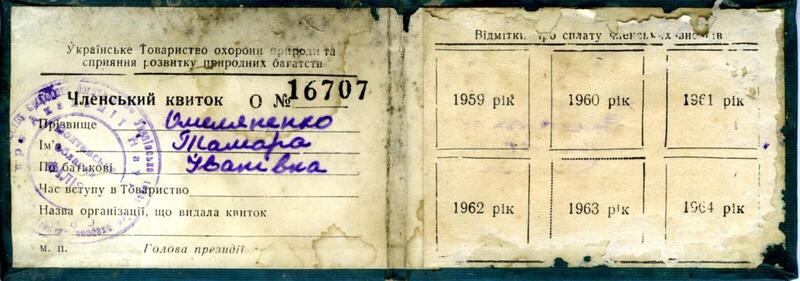 Українське Товариство охорони природи та
сприяння розвитку природних багатств
Членський квиток О № 16707
Прізвище Омеляненко
Ім'я Тамара
По батькові Іванівна
Час вступу в Товариство
Назва організації, що видала квиток
м. п. Голова президії
Відмітки про сплату членських внесків
1959 рік 1960 рік 1961 рік
1962 рік 1963 рік 1964 рік